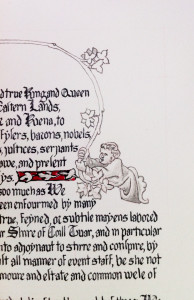 d true King and Queen
Eastern Lands,
and Kiena, to
Tylers, bacons, nobels,
s, justices, serjants
awe, and present
ys.
soo much as We
been enfourmed by many
true, feyned, or subtile meyens labored
ur Shire of Coill Tuar, and in particular
n to adjoynaut to stirre and conspire, by
ult all manner of event staff, be she not
moure and eltate and common wele of